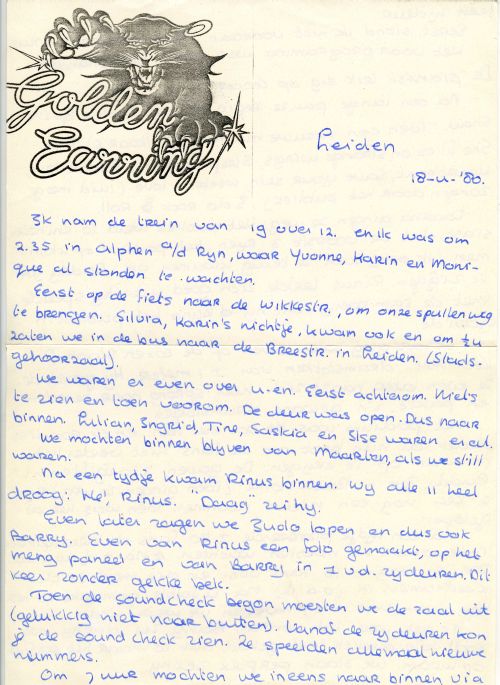 Golden
Earring
Leiden
18-11-'80.
Ik nam de trein van 19 over 12. en ik was om
2.35 in Alphen a/d Ryn, waar Yvonne, Karin en Moni-
que al stonden te wachten.
Eerst op de fiets naar de Wikkestr., om onze spullen weg
te brengen. Silvia, Karin's nichtje, kwam ook en om ½4
zaten we in de bus naar de Breestr. in Leiden. (Stads-
gehoorzaal).
We waren er even over 4-en. Eerst achterom. Niets
te zien en toen voorom. De deur was open. Dus naar
binnen. Lilian, Ingrid, Tine, Saskia en Ilse waren er al.
We mochten binnen blyven van Maarten, als we stil
waren.
Na een tydje kwam Rinus binnen. Wy alle 11 heel
droog: "Hé, Rinus. "Daag" zei hy.
Even later zagen we Ludo lopen en dus ook
Barry. Even van Rinus een foto gemaakt, op het
meng paneel en van Barry in 1 v.d. zydeuren. Dit
keer zonder gekke bek.
Toen de soundcheck begon moesten we de zaal uit
(gelukkig niet naar buiten). Vanaf de zydeuren kon
je de soundcheck zien. Ze speelden allemaal nieuwe
nummers.
Om 7 uur mochten we ineens naar binnen via